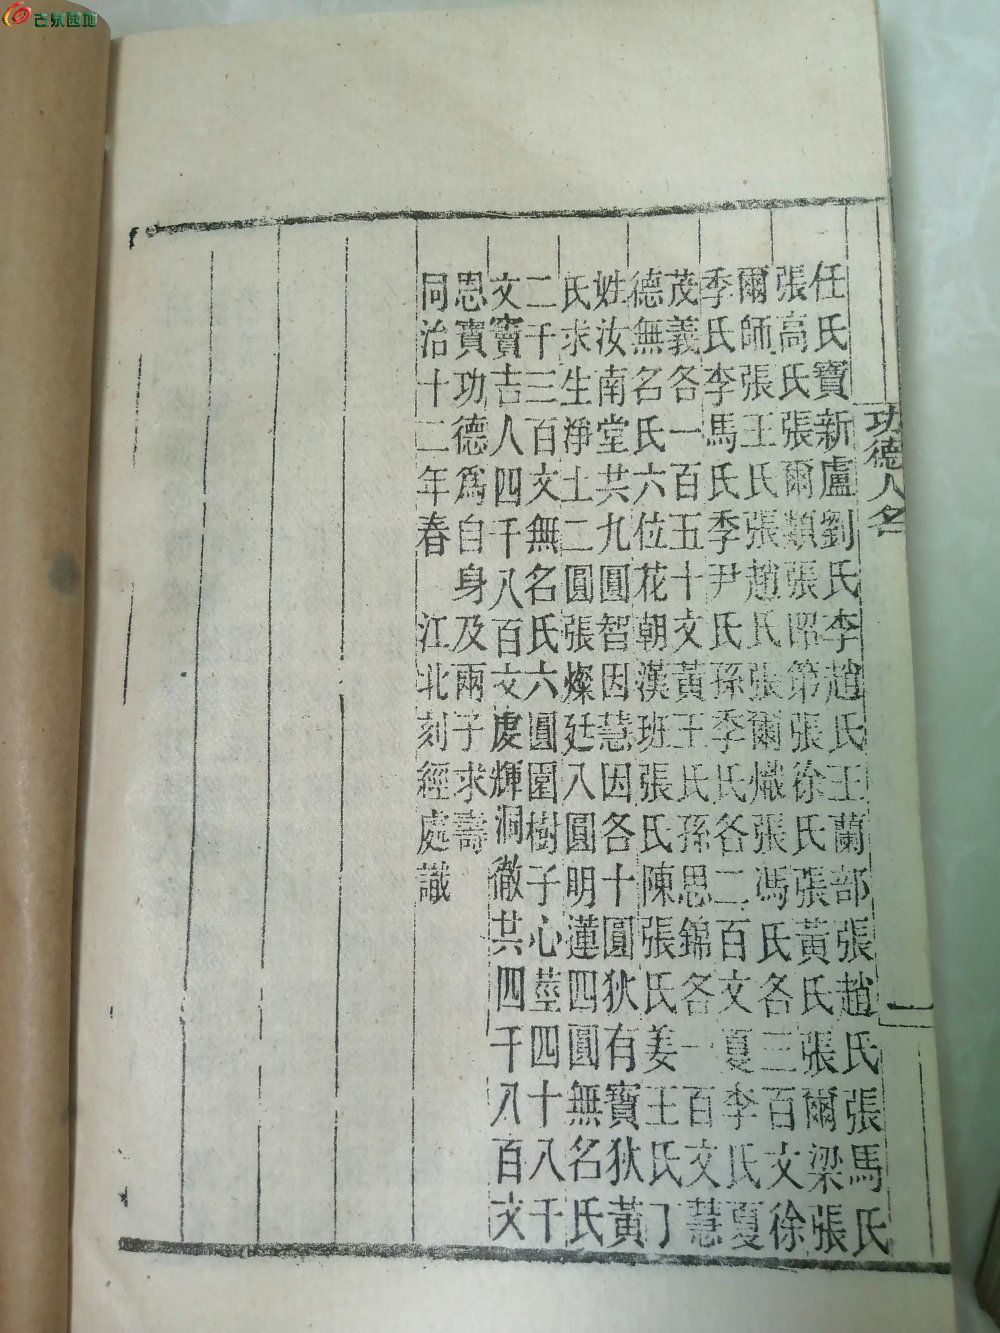 古泉园地
功德人名
一
任氏寶新盧劉氏李趙氏王蘭部張趙氏張馬氏
張高氏張爾類張昭第張徐氏張黃氏張爾梁張
爾師張王氏張趙氏張爾熾張馮氏各三百文徐
季氏李馬氏季尹氏孫季氏各二百文夏李氏夏
茂義各一百五十文黃王氏孫思錦各一百文慧
德無名氏六位花朝漢班張氏陳張氏姜王氏丁
姓汝南堂共九圓智因慧因各十圓狄有寶狄黃
氏求生淨土二圓張燦廷八圓明蓮四圓無名氏
二千三百文無名氏六圓園樹子心莖四十八千
文竇吉人四千八百文虔輝洞徹共四千八百文
思寶功德為自身及兩子求壽
同治十二年春 江北刻經處識